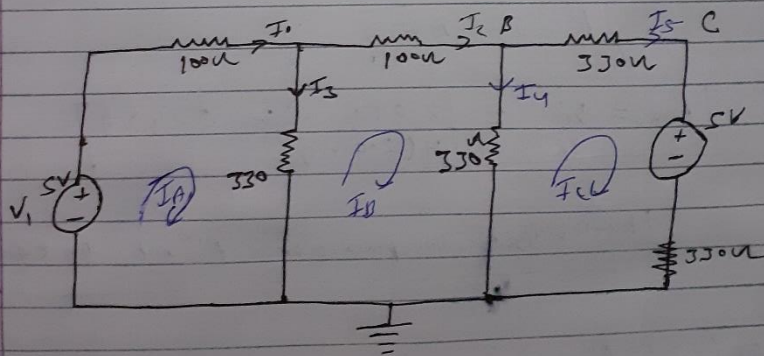 I1 I2 B I5 C
100Ω 100Ω 330Ω
I3 I4 5V
330 330Ω
5V IA IB IC
V1
330Ω